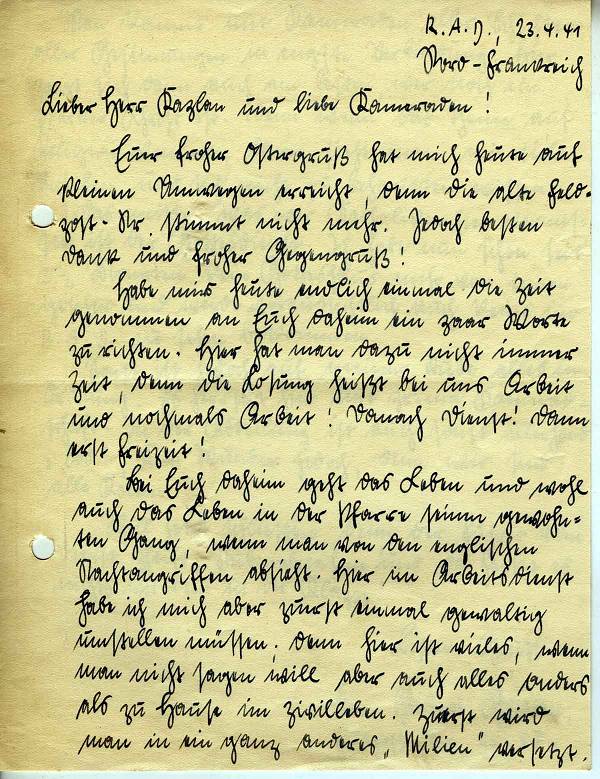 R.A.D., 23.4.41
Nord-Frankreich
Lieber Herr Kazlan und liebe Kameraden!
Euer froher Ostergruß hat mich heute auf
kleinen Umwegen erreicht, denn die alte Feld-
post-Nr. stimmt nicht mehr. Jedoch besten
Dank und froher Gegengruß!
Habe mir heute endlich einmal die Zeit
genommen an Euch daheim ein paar Worte
zu richten. Hier hat man dazu nicht immer
Zeit, denn die Losung heißt bei uns Arbeit
und nochmals Arbeit! Danach Dienst! Dann
erst Freizeit!
Bei Euch daheim geht das Leben und wohl
auch das Leben in der Pfarre seinen gewohn=
ten Gang, wenn man von den englischen
Nachtangriffen absieht. Hier im Arbeitsdienst
habe ich mich aber zuerst einmal gewaltig
umstellen müssen, denn hier ist vieles, wenn
man nicht sagen will aber auch alles anders
als zu Hause im Zivilleben. Zuerst wird
man in ein ganz anderes „Milieu" versetzt.